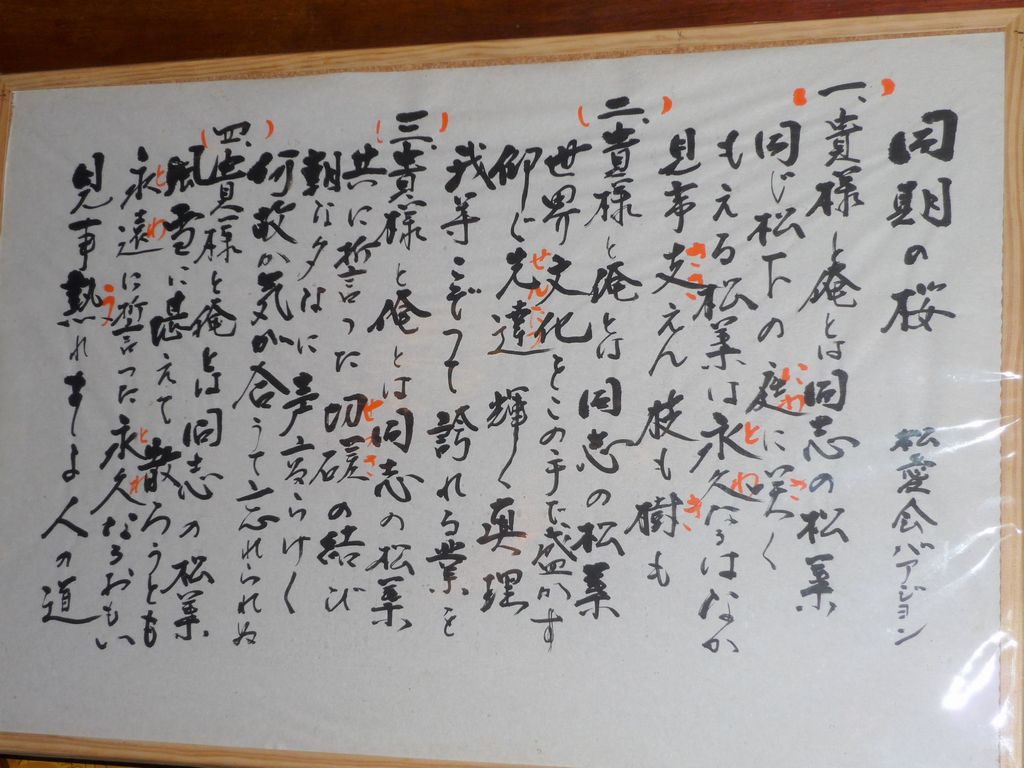 同期の桜
松愛会バアジョン
一、貴様と俺とは同志の松葉
同じ松下の庭に咲く
もえる松葉は永久なるはなか
見事支えん枝も樹も
二、貴様と俺とは同志の松葉
世界文化をこの手で盛かす
仰ぐ先達輝く真理
我等こぞって誇れる業を
三、貴様と俺とは同志の松葉
共に誓った切磋の結び
朝な夕なに声高らけく
何故か気が合うて忘れられぬ
四、貴様と俺とは同志の松葉
風雪に堪えて散ろうとも
永遠に誓った永久なるおもい
見事熱れましよ人の道